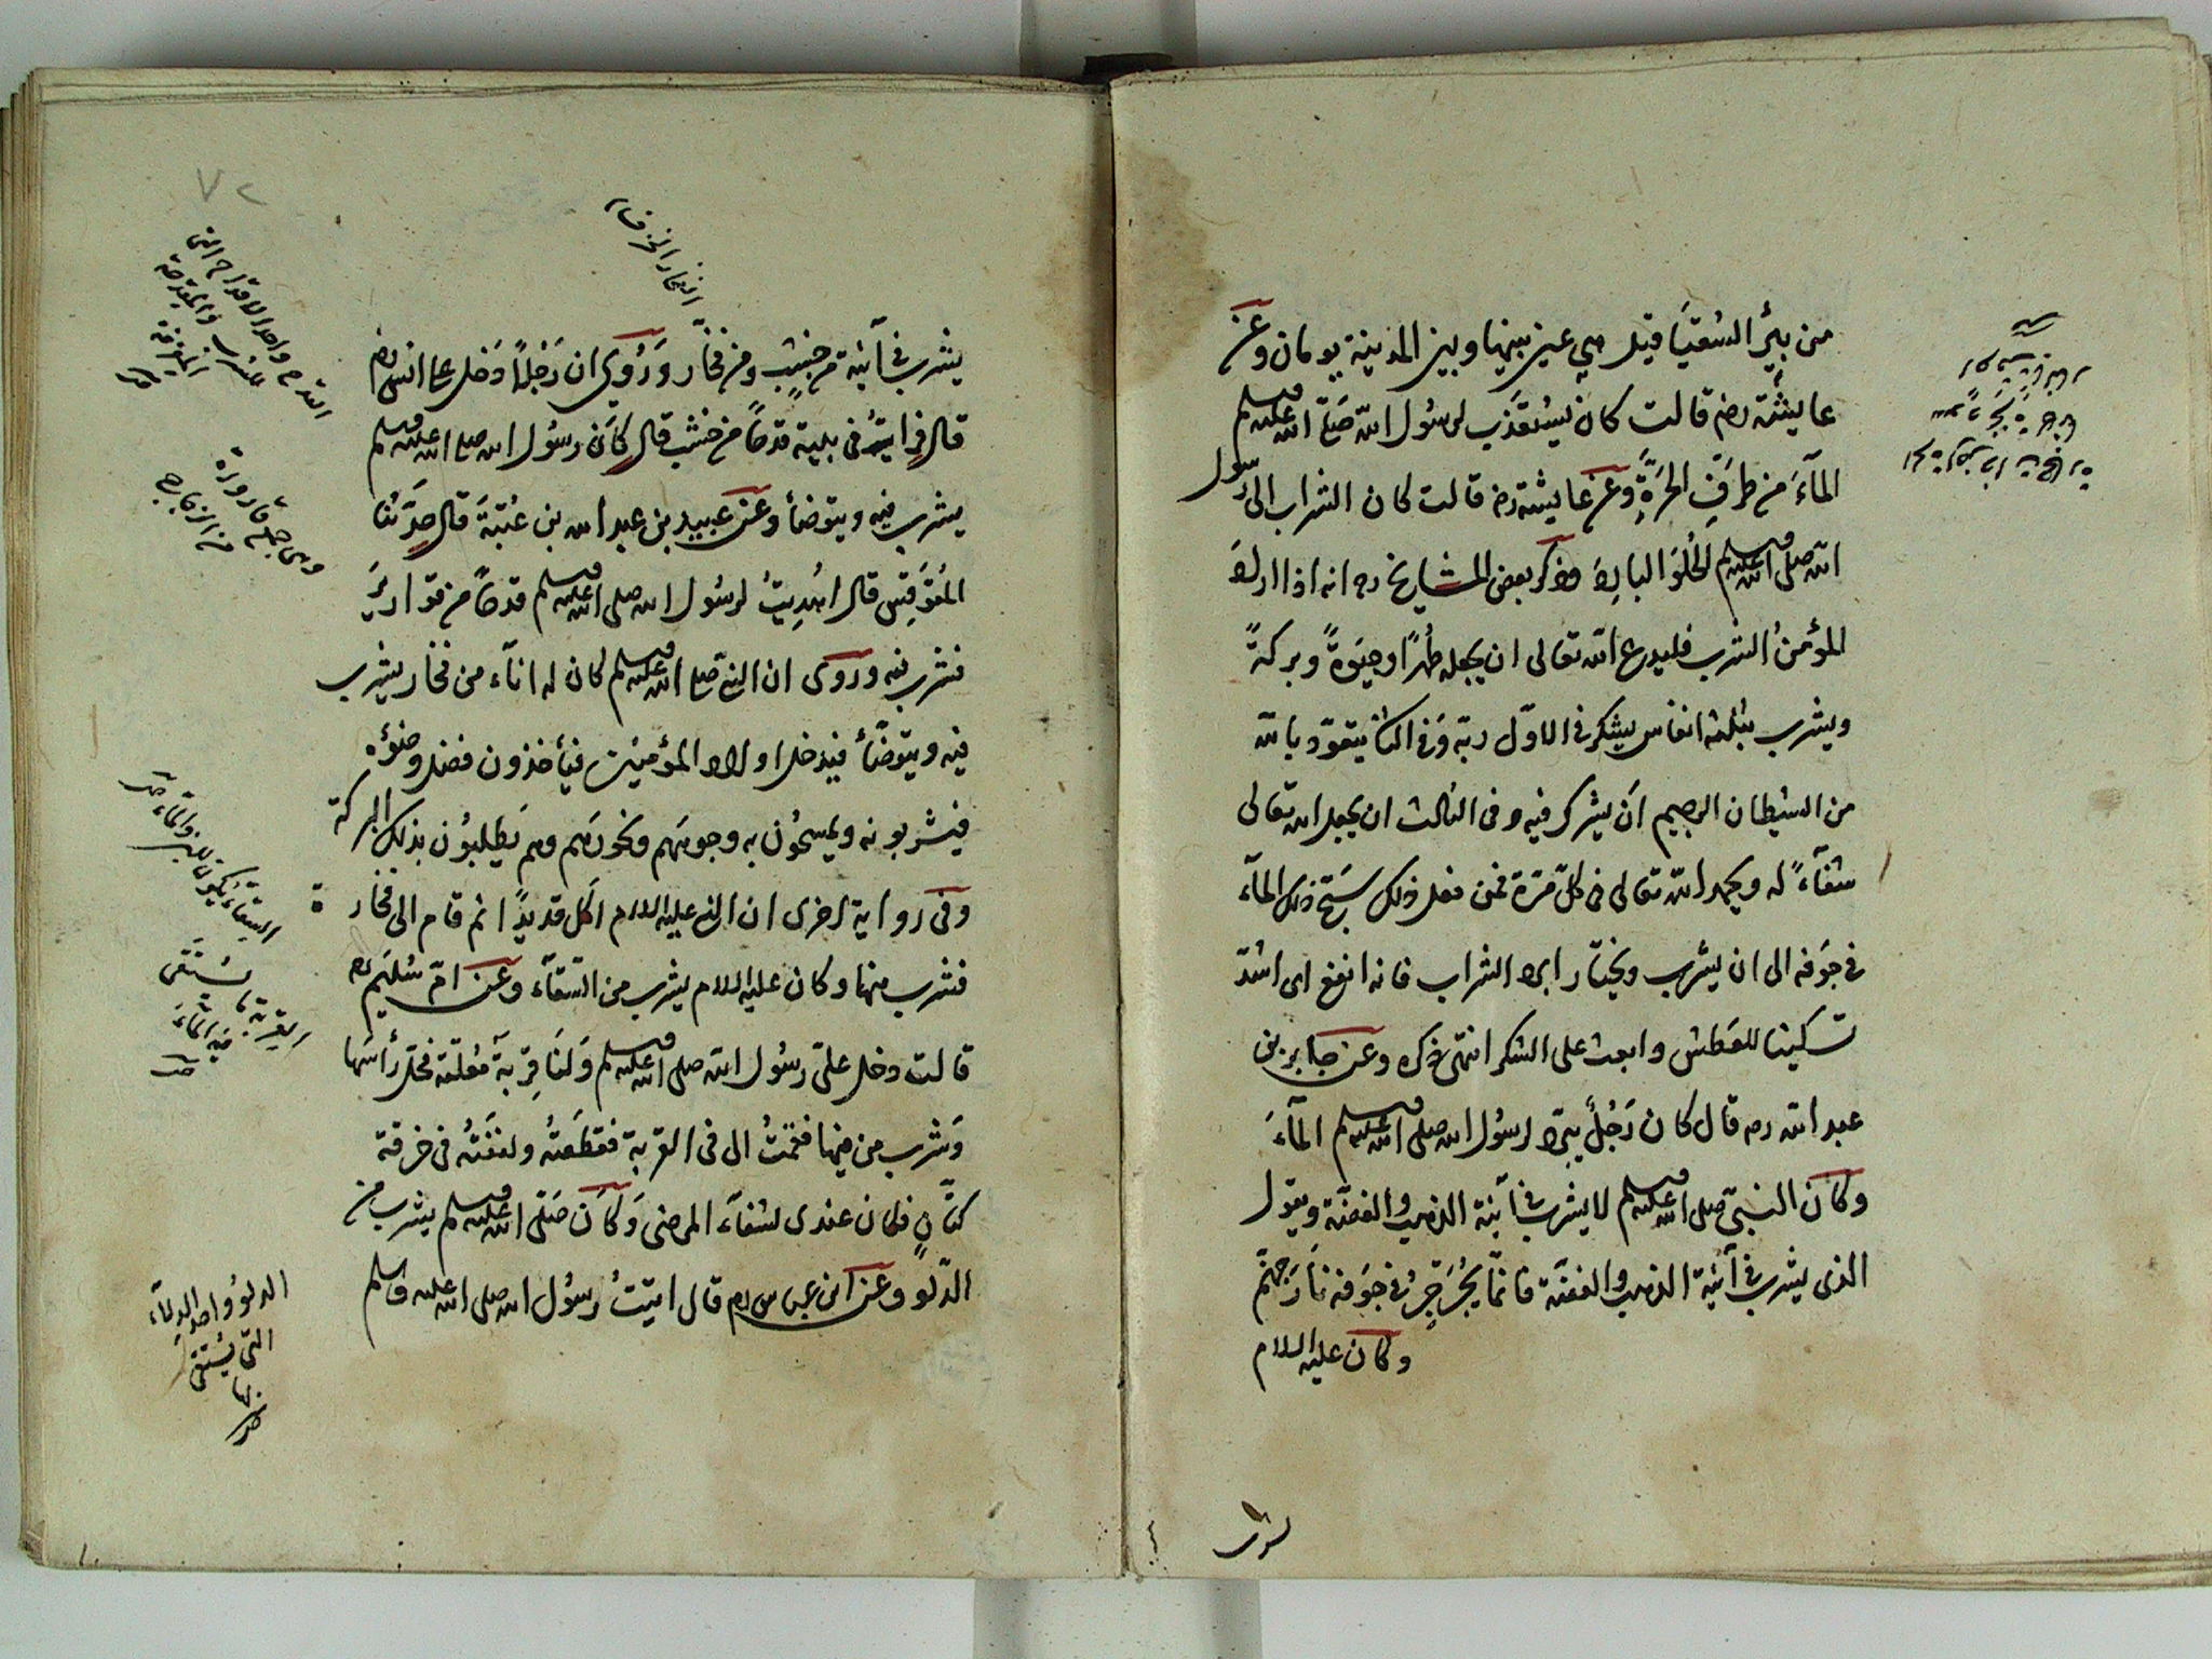 من بئر السُقيَا قيل هي عين بينها وبين المدينة يومان وعن
عايشة رضـ قالت كان يُسْتَعْذَب لرسُول الله صَلى الله عليه وسلم
المآءَ من طرَفِ الحَرَّةِ وعن عايشة رضـ قالت كان الشراب الى رسُول
الله صلى الله عليه وسلم الحُلوَ البارِدَ وذكر بعض المشايخ رح انه اذا اراد
المؤمنُ الشرب فليدع الله تعالى ان يجعله طُهرًا وحيَوةً وبركةً
ويشرب بثلثة انفاس يشكر في الاوّل ربّه وفى الثانى يتعوّذ بالله
من الشيطان الرجيم ان يشرك فيه وفى الثالث ان يجعله الله تعالى
شفآءً له ويحمد الله تعالى فى كلّ مرّة فمن فعل ذلك سَبَّح ذلك المآء
فى جَوفه الى ان يشرب ويختار ابرد الشراب فانه انفع اى اشدّ
تسكينا للعَطش وابعث على الشكر انتهى ذكره وعن جابر بن
عبد الله رضـ قال كان رَجُلٌ يبرّد لرسُول الله صلى الله عليه وسلم المآءَ
وكان النبىّ صلى الله عليه وسلم لا يشرب فى آنية الذهب والفضّة ويقول
الذى يشرب فى آنية الذهب والفضّة فانّما يُجَرجِرُ فى جَوفه نارَ جهنّم
وكان عليه السلام
٧٢
الفخّار الخزف
يشرب فى آنية من خشبٍ ومن فخّار وَرُوِىَ ان رَجُلاً دَخل على انس رضـ
قال فرايتُ فى بيته قدحًا من خشب قال كَانَ رسُول الله صلى الله عليه وسلم
يشرب فيه ويتوضأ وعن عبيد بن عبد الله بن عُتبَةَ قال حدَّثنا
المُقَوقِس قال اُهدِيتُ لرسُول الله صلى الله عليه وسلم قدحًا من قواريرَ
فشرب فيه وروى ان النبى صلى الله عليه وسلم كان له انآء من فخار يشرب
فيه ويتوضّأ فيدخل اولاد المؤمنين فيأخذون فضل وضوئه
فيشربونه ويمسحُون به وجوهَهم ونحورَهم وهم يَطلبُون بذلك البركة
وفى رواية اخرى ان النبى عليه السلام اكل قديدًا ثم قام الى فخارة
فشرب منها وكان عليه السلام يشرب من السّقآء وعن امّ سُلَيم رضـ
قالت دخل علىّ رسُول الله صلى الله عليه وسلم وَلنَا قِربةٌ مُعلّقة فحَلّ رأسَها
وَشرب من فيها فقمتُ الى فى القربة فقطعتُه ولففتُه فى خرقة
كتّانٍ فكان عندى لشفآء المرضى وَكَانَ صَلّى الله عليه وسلم يشرب من
الدّلو وعن ابن عباس رضـ قال اتيتُ رسُول الله صلى الله عليه وسلم
القدح واحد الاقداح التى
وهى جمع قارورة
من الزجاج
السِقاء يكون للبن والماء
القربة ما يُسْتَقى
فيه المَاءَ
الدلوُ واحد الدِلآء
التى يُسْتقى
بها